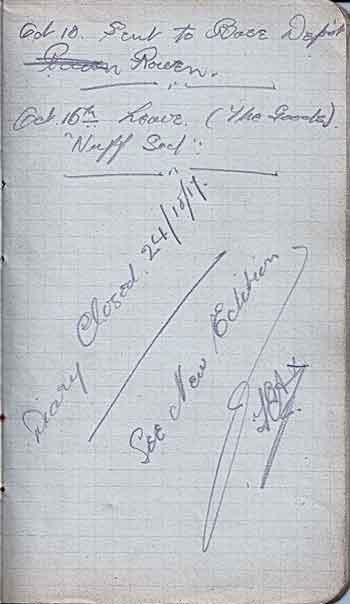 Oct 10. Sent to Base Depot
Rouen Rouen.
Oct. 16th Leave. (The Goods).
"Nuff Sed".
Diary Closed. 24/10/17.
See New Edition